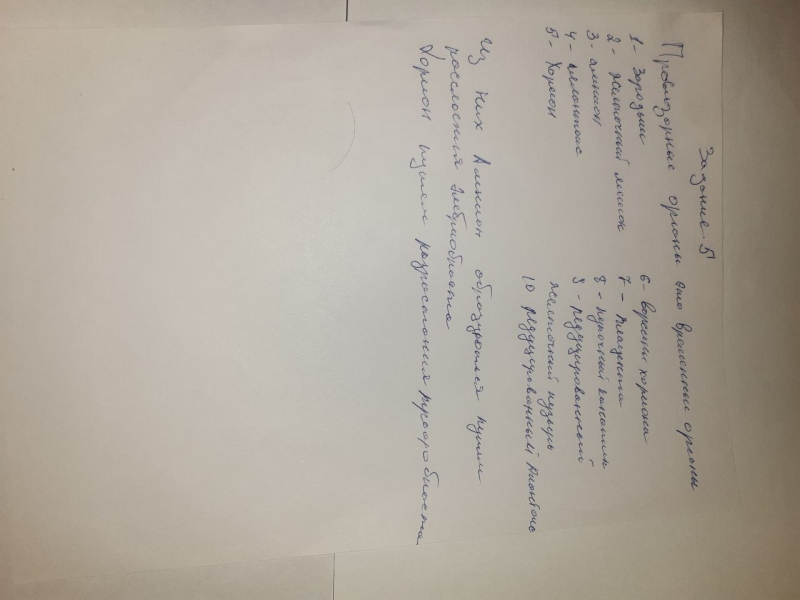 Задание 5
Провизорные органы это временные органы
1- Зародыш
2- желточный мешок
3- амнион
4- аллантоис
5- Хорион
6- ворсины хориона
7- плацента
8- пупочный канатик
9- редуцированный
желточный пузырь
10 редуцированный
Из них Амнион образуется путем
расслоения эмбриобласта
Хорион путем разрастания трофобласта.